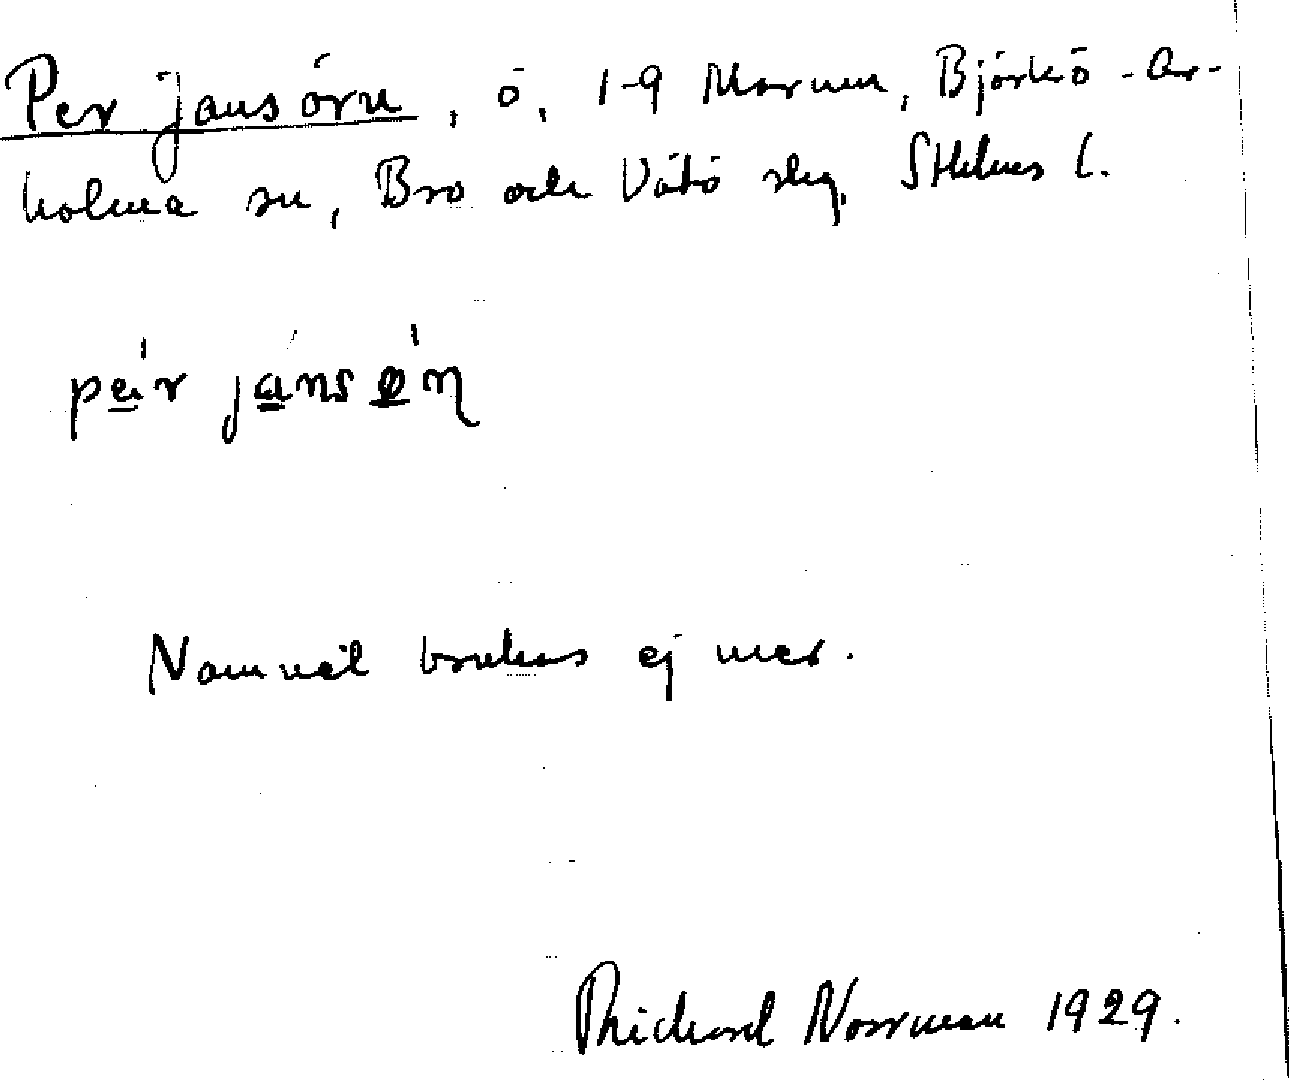 Per jansörn, ö, 1-9 Marum, Björkö-Ar-
holma sn, Bro och Vätö slg, Sthlms l.
pęr jansøṇ
Namnet brukas ej mer.
Richard Norrman 1929.